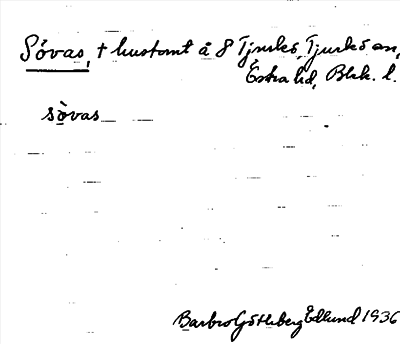 Sövas, † hustomt å 8 Tjurkö, Tjurkö sn,
Östra hd, Blek. l.
sòvas
Barbro Götheberg Edlund 1936